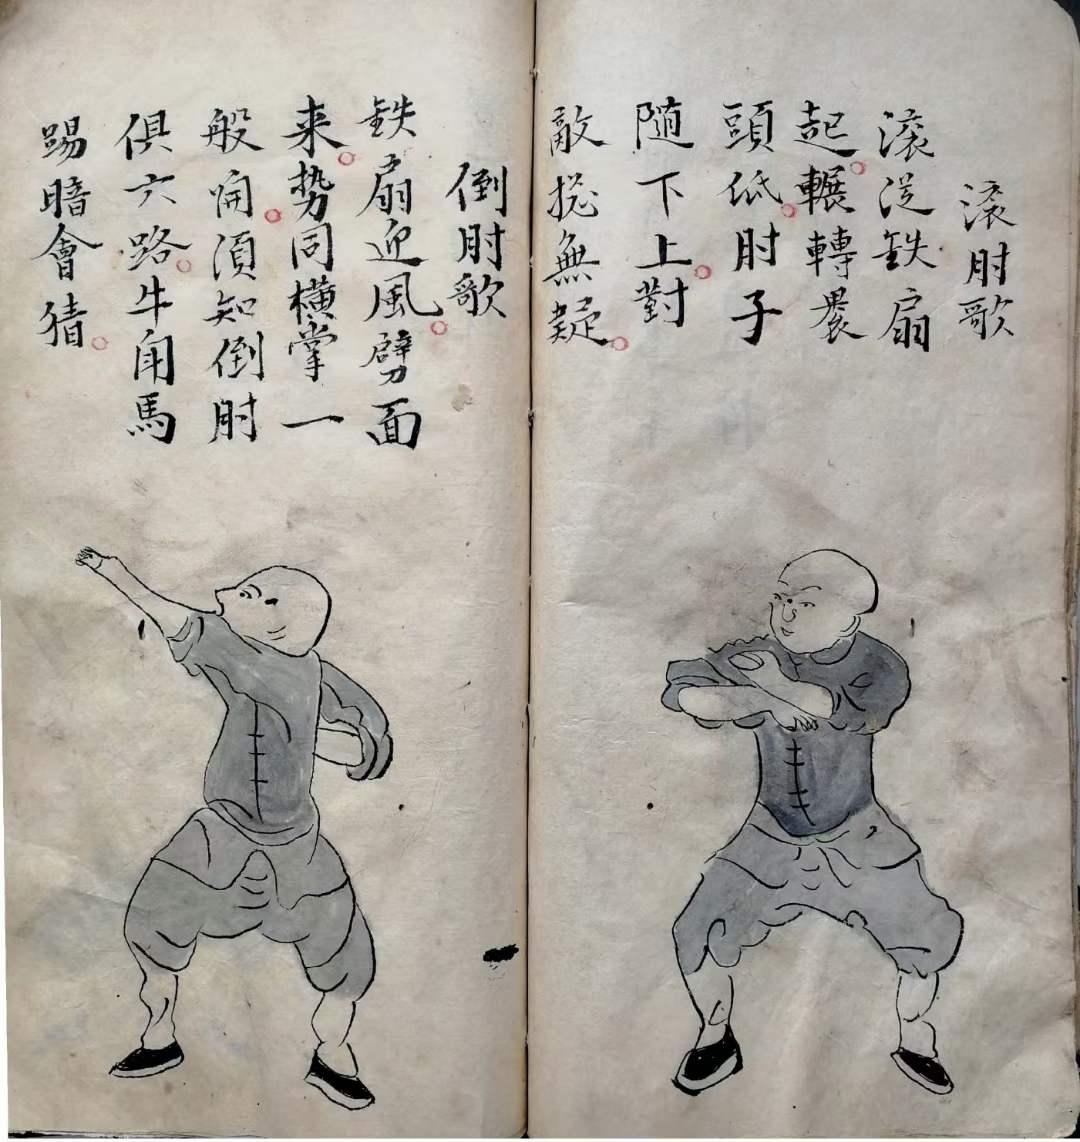 滚肘歌
滚従鉄扇
起○輾轉
頭低○肘子
随下上○對
敵搃無疑○
倒肘歌
鉄扇迎風○劈面
来○势同横掌一
般○須知倒肘
俱六路○牛角馬
踢暗會猜○